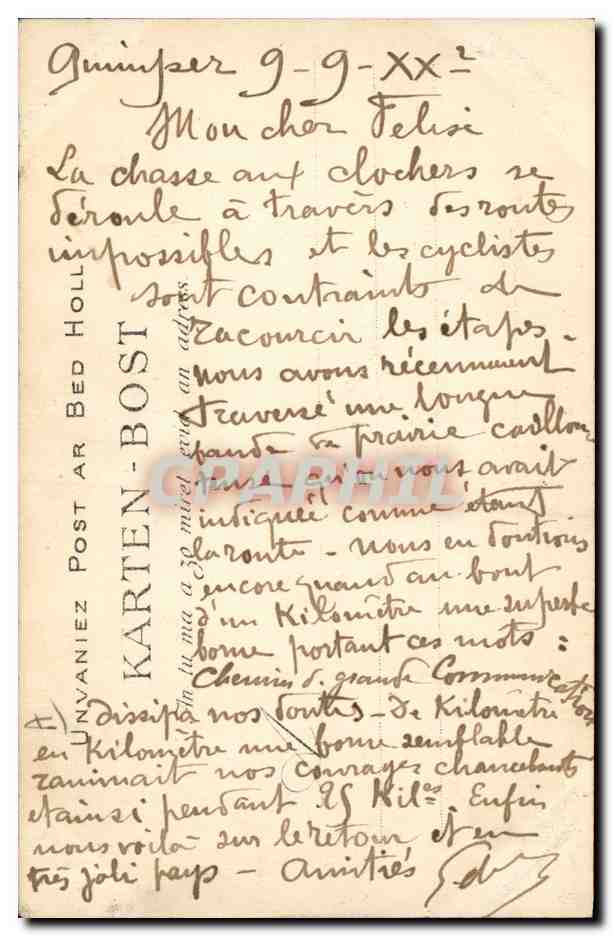 Quimper 9-9-XX²
Mon cher Felise
La chasse aux clochers se
déroule à travers des routes
impossibles et les cyclistes
sont contraints de
racourcir les étapes.
nous avons récemment
traversé une longue
bande de prairie caillou
teuse qu'on nous avait
indiquée comme étant
la route - nous en doutions
encore quand au bout
d'un Kilomètre une superbe
borne portant ces mots :
Chemin d. grande Communication
dissipa nos doutes - De Kilomètre
en Kilomètre une borne semblable
ranimait nos courages chancelants
et ainsi pendant 25 Kil.es. Enfin
nous voilà sur le retour et en
très joli pays - Amitiés
UNVANIEZ POST AR BED HOLL
KARTEN-BOST
An tu ma a zo miret evid an adress
CPARAMA CPHIL